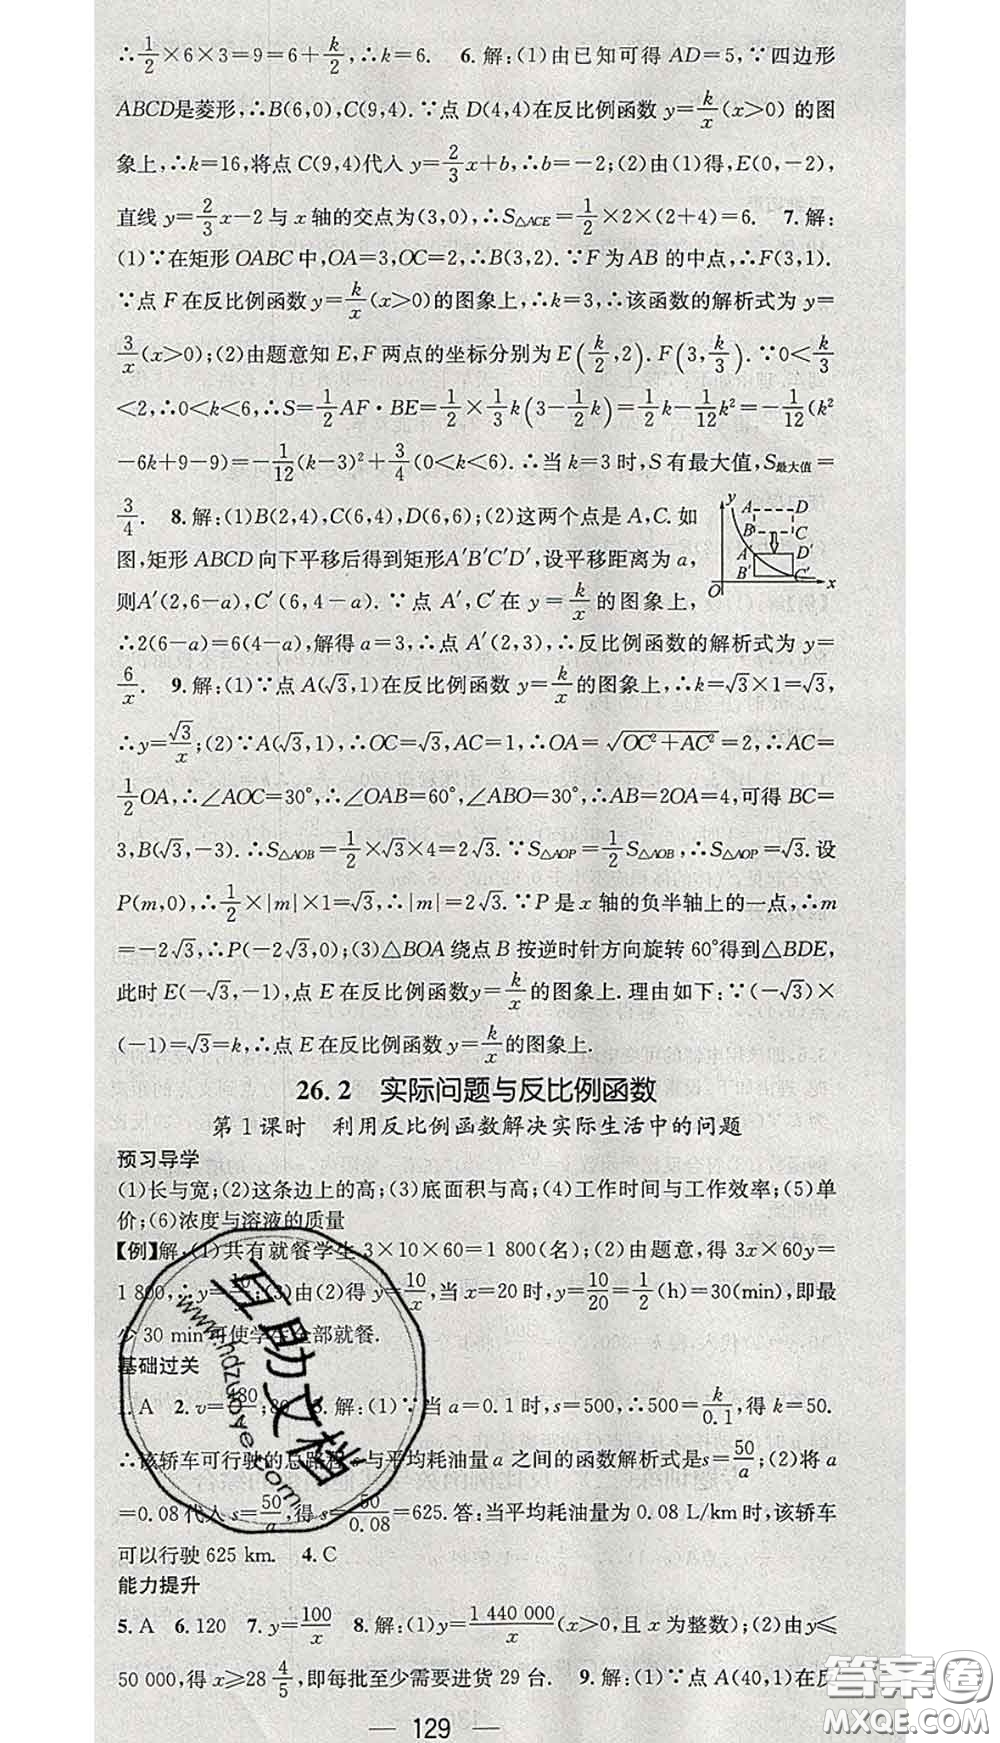 ∴1/2×6×3=9=6+k/2,∴k=6. 6.解:(1)由已知可得 AD=5,∵四边形
ABCD是菱形,∴B(6,0),C(9,4).∵点 D(4,4)在反比例函数 y=k/x(x>0)的图
象上,∴k=16,将点 C(9,4)代入 y=2/3x+b,∴b=-2;(2)由(1)得,E(0,-2),
直线 y=2/3x-2 与 x 轴的交点为(3,0),∴S△ACE=1/2×2×(2+4)=6. 7.解:
(1)∵在矩形 OABC 中,OA=3,OC=2,∴B(3,2).∵F 为 AB 的中点,∴F(3,1).
∵点 F 在反比例函数 y=k/x(x>0)的图象上,∴k=3,∴该函数的解析式为 y=
3/x(x>0);(2)由题意知 E,F 两点的坐标分别为 E(k/2,2).F(3,k/3).∵0<k/3
<2,∴0<k<6,∴S=1/2AF·BE=1/2×1/3k(3-1/2k)=1/2k-1/12k²=-1/12(k²
-6k+9-9)=-1/12(k-3)²+3/4(0<k<6).∴当 k=3 时,S 有最大值,S最大值=
3/4. 8.解:(1)B(2,4),C(6,4),D(6,6);(2)这两个点是 A,C.如
图,矩形 ABCD 向下平移后得到矩形A′B′C′D′,设平移距离为 a,
则A′(2,6-a),C′(6,4-a).∵点 A′,C′在 y=k/x的图象上,
y A D
B C
A′ D′
B′ C′
O x
∴2(6-a)=6(4-a),解得 a=3,∴点 A′(2,3),∴反比例函数的解析式为 y=
6/x. 9.解:(1)∵点 A(√3,1)在反比例函数 y=k/x的图象上,∴k=√3×1=√3,
∴y=√3/x;(2)∵A(√3,1),∴OC=√3,AC=1,∴OA=√(OC²+AC²)=2,∴AC=
1/2OA,∴∠AOC=30°,∴∠OAB=60°,∠ABO=30°,∴AB=2OA=4,可得 BC=
3,B(√3,-3).∴S△AOB=1/2×√3×4=2√3.∵S△AOP=1/2S△AOB,∴S△AOP=√3.设
P(m,0),∴1/2×|m|×1=√3,∴|m|=2√3.∵P 是 x 轴的负半轴上的一点,∴m
=-2√3,∴P(-2√3,0);(3)△BOA 绕点 B 按逆时针方向旋转 60°得到△BDE,
此时 E(-√3,-1),点 E 在反比例函数y=k/x的图象上.理由如下:∵(-√3)×
(-1)=√3=k,∴点 E 在反比例函数 y=k/x的图象上.
26.2 实际问题与反比例函数
第 1 课时 利用反比例函数解决实际生活中的问题
预习导学
(1)长与宽;(2)这条边上的高;(3)底面积与高;(4)工作时间与工作效率;(5)单
价;(6)浓度与溶液的质量
【例】解:(1)共有就餐学生 3×10×60=1 800(名);(2)由题意,得 3x×60y=
1 800,∴y=10/x;(3)由(2)得 y=10/x,当 x=20 时,y=10/20=1/2(h)=30(min),即最
少 30 min可使学生全部就餐.
基础过关
1.A 2.v=480/;80 3.解:(1)∵当 a=0.1 时,s=500,∴500=k/0.1,得 k=50.
∴该轿车可行驶的总路程 s 与平均耗油量 a 之间的函数解析式是s=50/a;(2)将 a
=0.08 代入 s=50/a,得 s=50/0.08=625.答:当平均耗油量为 0.08 L/km 时,该轿车
可以行驶 625 km. 4.C
能力提升
5.A 6.120 7.y=100/x 8.解:(1)y=1 440 000/x(x>0,且 x 为整数);(2)由y≤
50 000,得 x≥28 4/5,即每批至少需要进货 29 台. 9.解:(1)∵点 A(40,1)在反
— 129 —
互助文档
www.hdzuoye.com
答案圈
MXQE.COM